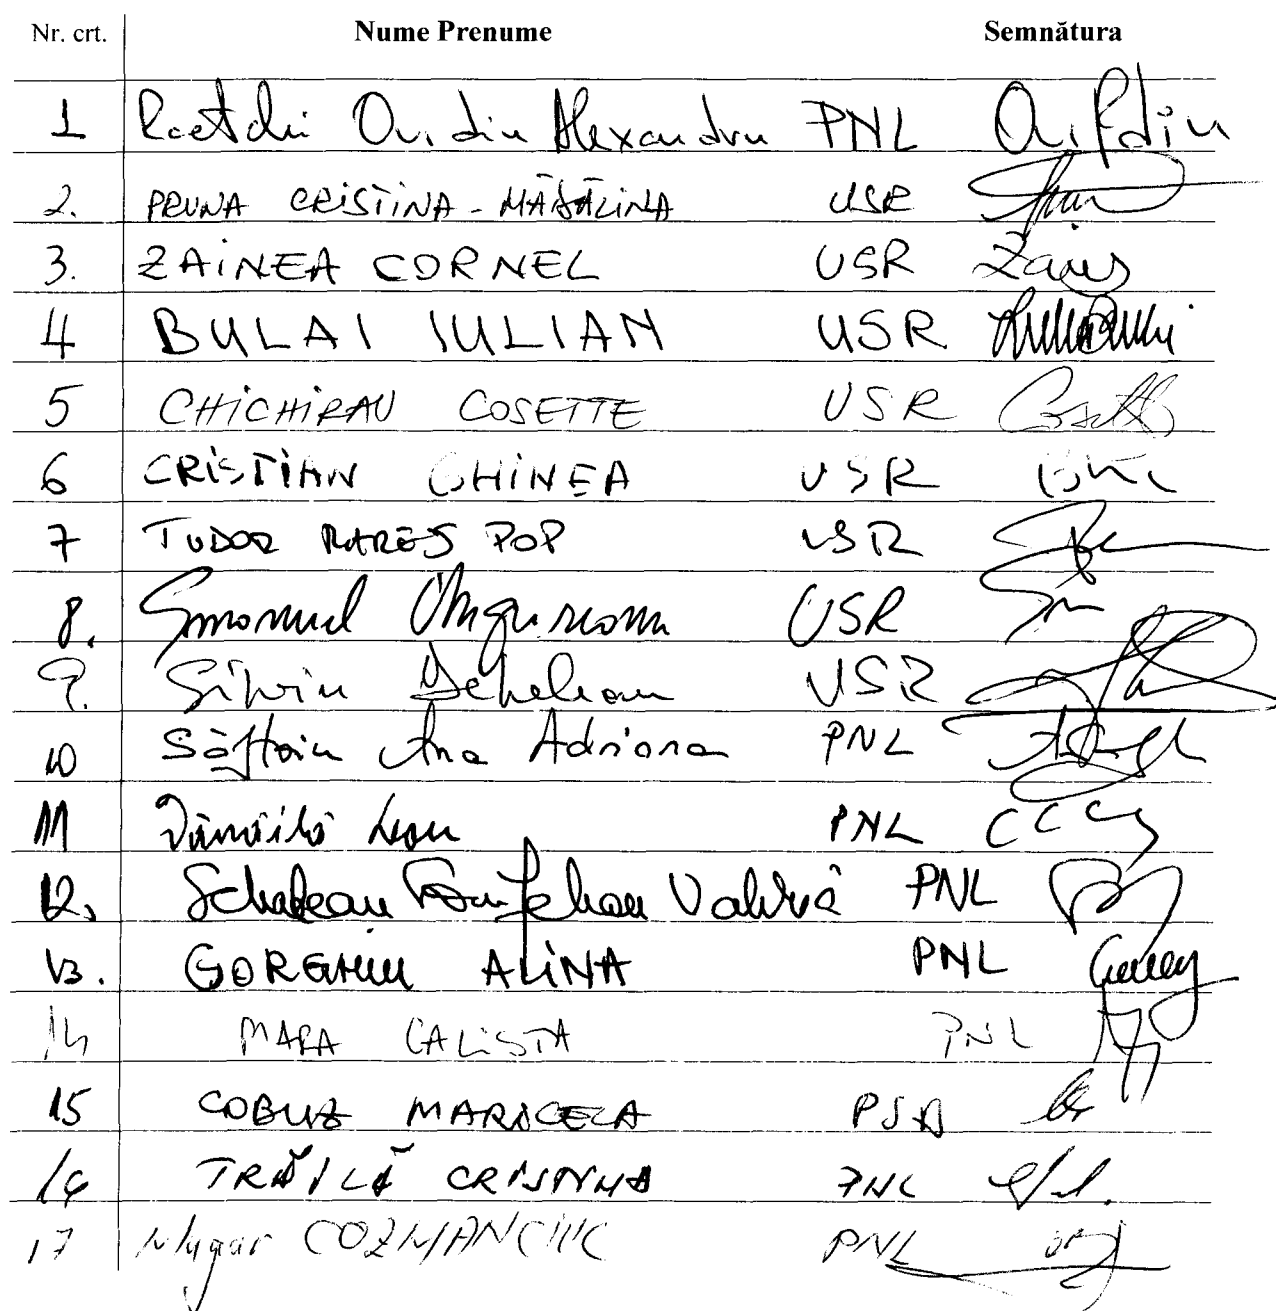 Nr. crt. Nume Prenume Semnătura
1 Raetchi Ovidiu Alexandru PNL
2. PRUNA CRISTINA-MĂDĂLINA USR
3. ZAINEA CORNEL USR
4 BULAI IULIAN USR
5 CHICHIRAU COSETTE USR
6 CRISTIAN GHINEA USR
7 TUDOR RAREȘ POP USR
8. Emanuel Ungureanu USR
9. Silviu Dehelean USR
10 Săftoiu Ana Adriana PNL
11 PNL
12. Schelean Valeria PNL
13. GORGHIU ALINA PNL
14 MARA CALISTA PNL
15 COBUZ MARICELA PSD
16 TRĂILĂ CRISTINA PNL
17 Mugur COZMANCIUC PNL